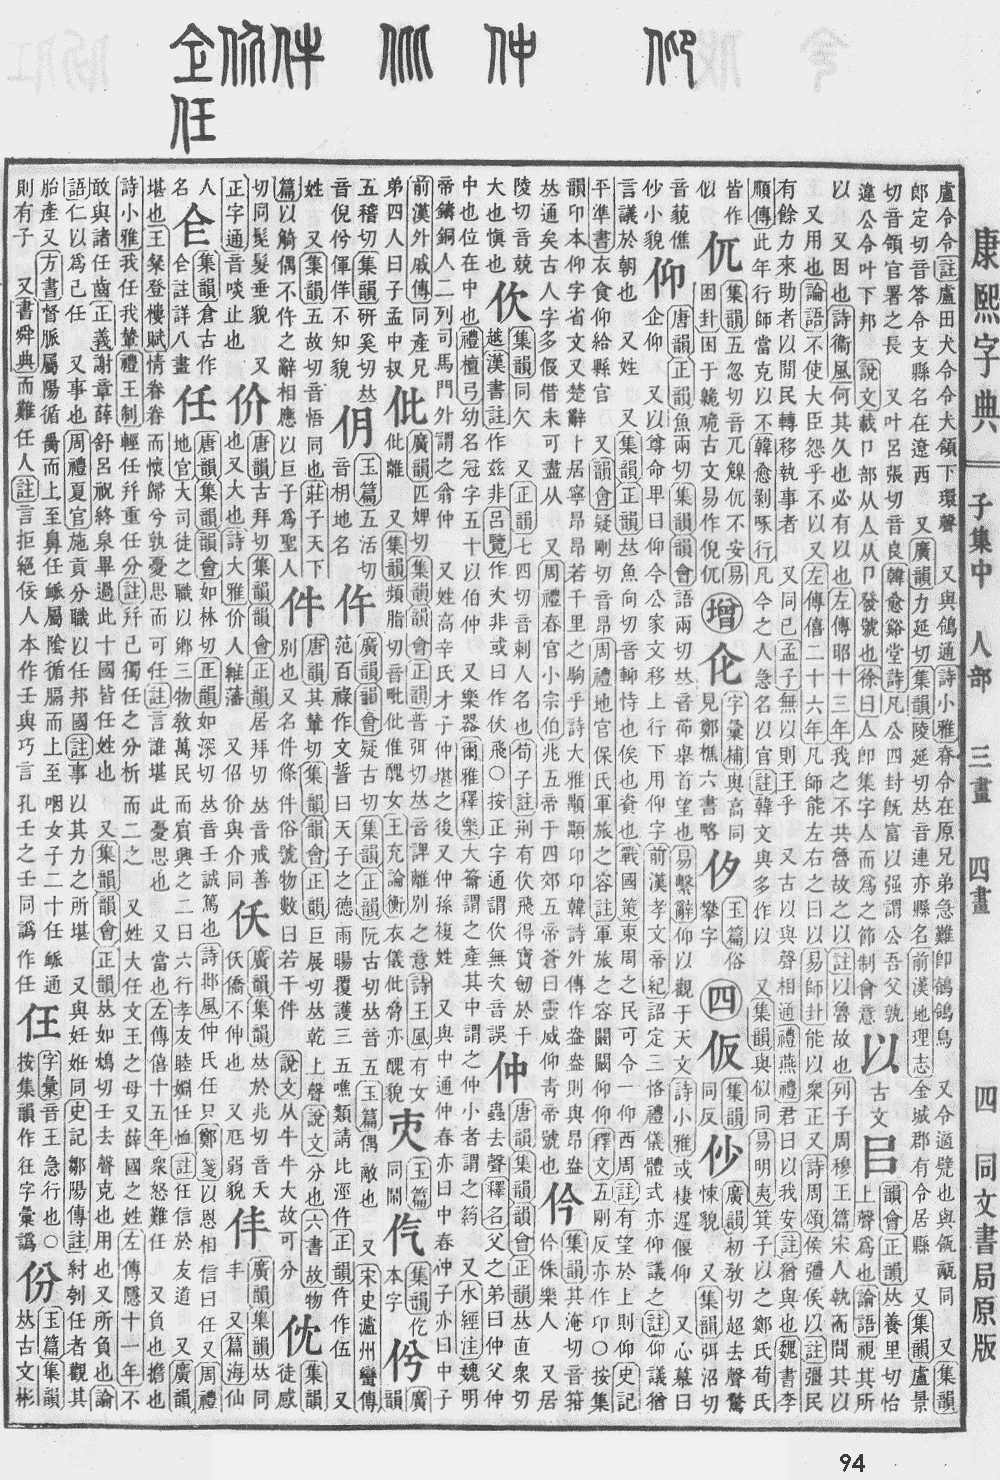 康熙字典 子集中 人部 三畫 四畫 四 同文書局原版
盧令令註盧田犬令令犬頷下環聲 又與鴒通詩小雅脊令在原兄弟急難卽鴒鴒鳥 又令適甓也與瓴甋同 又集韻
郎定切音答令支縣名在遼西 又廣韻力延切集韻陵延切𠀤音連亦縣名前漢地理志金城郡有令居縣 又集韻盧景
切音領官署之長 又叶呂張切音良韓愈谿堂詩凡公四封旣富以强謂公吾父孰
違公令叶下邦 說文載卩部从人从卩發號也徐曰人卩集字人而爲之節制會意
以 古文㠯 韻會正韻𠀤養里切怡上聲爲也論語視其所
以 又因也詩衞風何其久也必有以也左傳昭十三年我之不共魯故之以註以魯故也列子周穆王篇宋人執而問其以
又用也論語不使大臣怨乎不以又左傳僖二十六年凡師能左右之曰以易師卦能以衆正又詩周頌侯彊侯以註彊民
有餘力來助者以閒民轉移執事者 又同已孟子無以則王乎 又古以與聲相通禮燕禮君曰以我安註猶與也魏書李
順傳此年行師當克以不韓愈剝啄行凡今之人急名以官註韓文與多作以 又集韻與似同易明夷箕子以之鄭氏荀氏
皆作似
㐳 集韻五忽切音兀鯢㐳不安易困卦困于臲卼古文易作倪㐳
增
仑 字彙補與高同見鄭樵六書略
㐴 玉篇俗攀字
四
仮 集韻同反
仯 廣韻初敎切超去聲驚悚貌 又集韻弭沼切
音藐僬仯小貌
仰 唐韻正韻魚兩切集韻韻會語兩切𠀤音茚舉首望也易繫辭仰以觀于天文詩小雅或棲遲偃仰 又心慕曰
企仰 又以尊命卑曰仰今公家文移上行下用仰字前漢孝文帝紀詔定三恪禮儀體式亦仰議之註仰議猶
言議於朝也 又姓 又集韻正韻𠀤魚向切音䩕恃也俟也資也戰國策東周之民可令一仰西周註有望於上則仰史記
平準書衣食仰給縣官 又韻會疑剛切音昂周禮地官保氏軍旅之容註軍旅之容闞闞仰仰釋文五剛反亦作卬○按集
韻卬本仰字省文又楚辭卜居寧昂昂若千里之駒乎詩大雅顒顒卬卬韓詩外傳作盎盎則與昂盎
𠀤通矣古人字多假借未可盡从 又周禮春官小宗伯兆五帝于四郊五帝蒼曰靈威仰靑帝號也
仱 集韻其淹切音箝仱侏樂人 又居
陵切音兢
㐸 集韻同欠 又正韻七四切音刺人名也荀子註荆有㐸飛得寶劒於干
越漢書註作兹非呂覽作㳄非或曰作㐸飛○按正字通謂㐸無㳄音誤
仲 唐韻集韻韻會正韻𠀤直衆切
蟲去聲釋名父之弟曰仲父仲
中也位在中也禮檀弓幼名冠字五十以伯仲 又樂器爾雅釋樂大籥謂之產其中謂之仲小者謂之箹 又水經注魏明
帝鑄銅人二列司馬門外謂之翁仲 又姓高辛氏才子仲堪之後又仲孫複姓 又與中通仲春亦曰中春仲子亦曰中子
前漢外戚傳同產兄弟四人曰子孟中叔
仳 廣韻匹婢切集韻韻會正韻普弭切𠀤音諀離別之意詩王風有女仳離 又集韻頻脂切音毗仳倠醜女王充論衡衣儀仳脅亦醜貌
㐮 玉篇同鬧
仡 集韻仡本字
㐹 廣韻
五稽切集韻研奚切𠀤音倪㐹倱佯不知貌
仴 玉篇五活切音枂地名
仵 廣韻韻會疑古切集韻正韻阮古切𠀤音五玉篇偶敵也 又宋史瀘州蠻傳
范百祿作文誓曰天子之德雨暘覆護三五噍類請比涇仵正韻仵作伍 又
姓 又集韻五故切音悟同也莊子天下
篇以觭偶不仵之辭相應以巨子爲聖人
件 唐韻其輦切集韻韻會正韻巨展切𠀤乾上聲說文分也六書故物
別也又名件條件俗號物數曰若干件 說文从牛牛大故可分
㐻 集韻徒感
切同髧髮垂貌 又正字通音啖止也
价 唐韻古拜切集韻韻會正韻居拜切𠀤音戒善也又大也詩大雅价人維藩 又佋价與介同
仸 廣韻集韻𠀤於兆切音夭仸僑不伸也 又尫弱貌
仹 廣韻集韻𠀤同丰 又篇海仙人名
仝 集韻倉古作仝註詳八畫
任 唐韻集韻韻會如林切正韻如深切𠀤音壬誠篤也詩邶風仲氏任只鄭箋以恩相信曰任又周禮
地官大司徒之職以鄕三物敎萬民而賓興之二曰六行孝友睦婣任恤註任信於友道 又廣韻
堪也王粲登樓賦情眷眷而懷歸兮孰憂思而可任註言誰堪此憂思也 又當也左傳僖十五年衆怒難任 又負也擔也
詩小雅我任我輦禮王制輕任幷重任分註幷己獨任之分析而二之 又姓大任文王之母又薛國之姓左傳隱十一年不
敢與諸任齒正義謝章薛舒呂祝終泉畢過此十國皆任姓也 又集韻韻會正韻𠀤如鴆切壬去聲克也用也又所負也論
語仁以爲己任 又事也周禮夏官施貢分職以任邦國註事以其力之所堪 又與妊姙同史記鄒陽傳註紂刳任者觀其
胎產又方書督脈屬陽循脊而上至鼻任脈屬陰循膈而上至咽女子二十任脈通
則有子 又書舜典而難任人註言拒絕佞人本作壬與巧言孔壬之壬同譌作任
㐼 字彙音王急行也○按集韻作往字彙譌
份 玉篇集韻𠀤古文彬
94